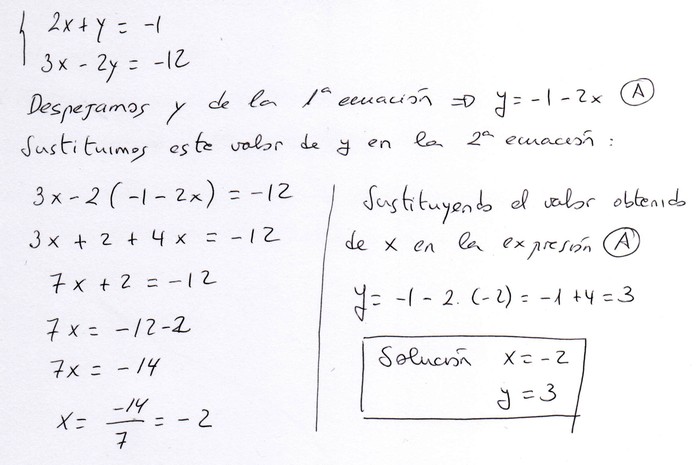 2x + y = -1
3x - 2y = -12
Despejamos y de la 1ª ecuación ⇒ y = -1 - 2x (A)
Sustituimos este valor de y en la 2ª ecuación :
3x - 2 (-1 - 2x) = -12
3x + 2 + 4x = -12
7x + 2 = -12
7x = -12 - 2
7x = -14
x = -14/7 = -2
Sustituyendo el valor obtenido
de x en la expresión (A)
y = -1 - 2 · (-2) = -1 + 4 = 3
Solución x = -2
y = 3